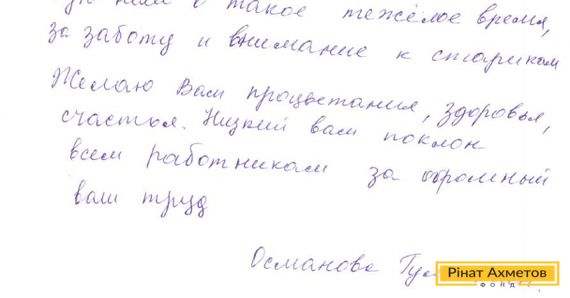 такое тежёлое время,
за заботу и внимание к старикам
Желаю Вам процветания, здоровья,
счастья. Низкий вам поклон
всем работникам за огромный
ваш труд
Османова
Рінат Ахметов
ФОНД